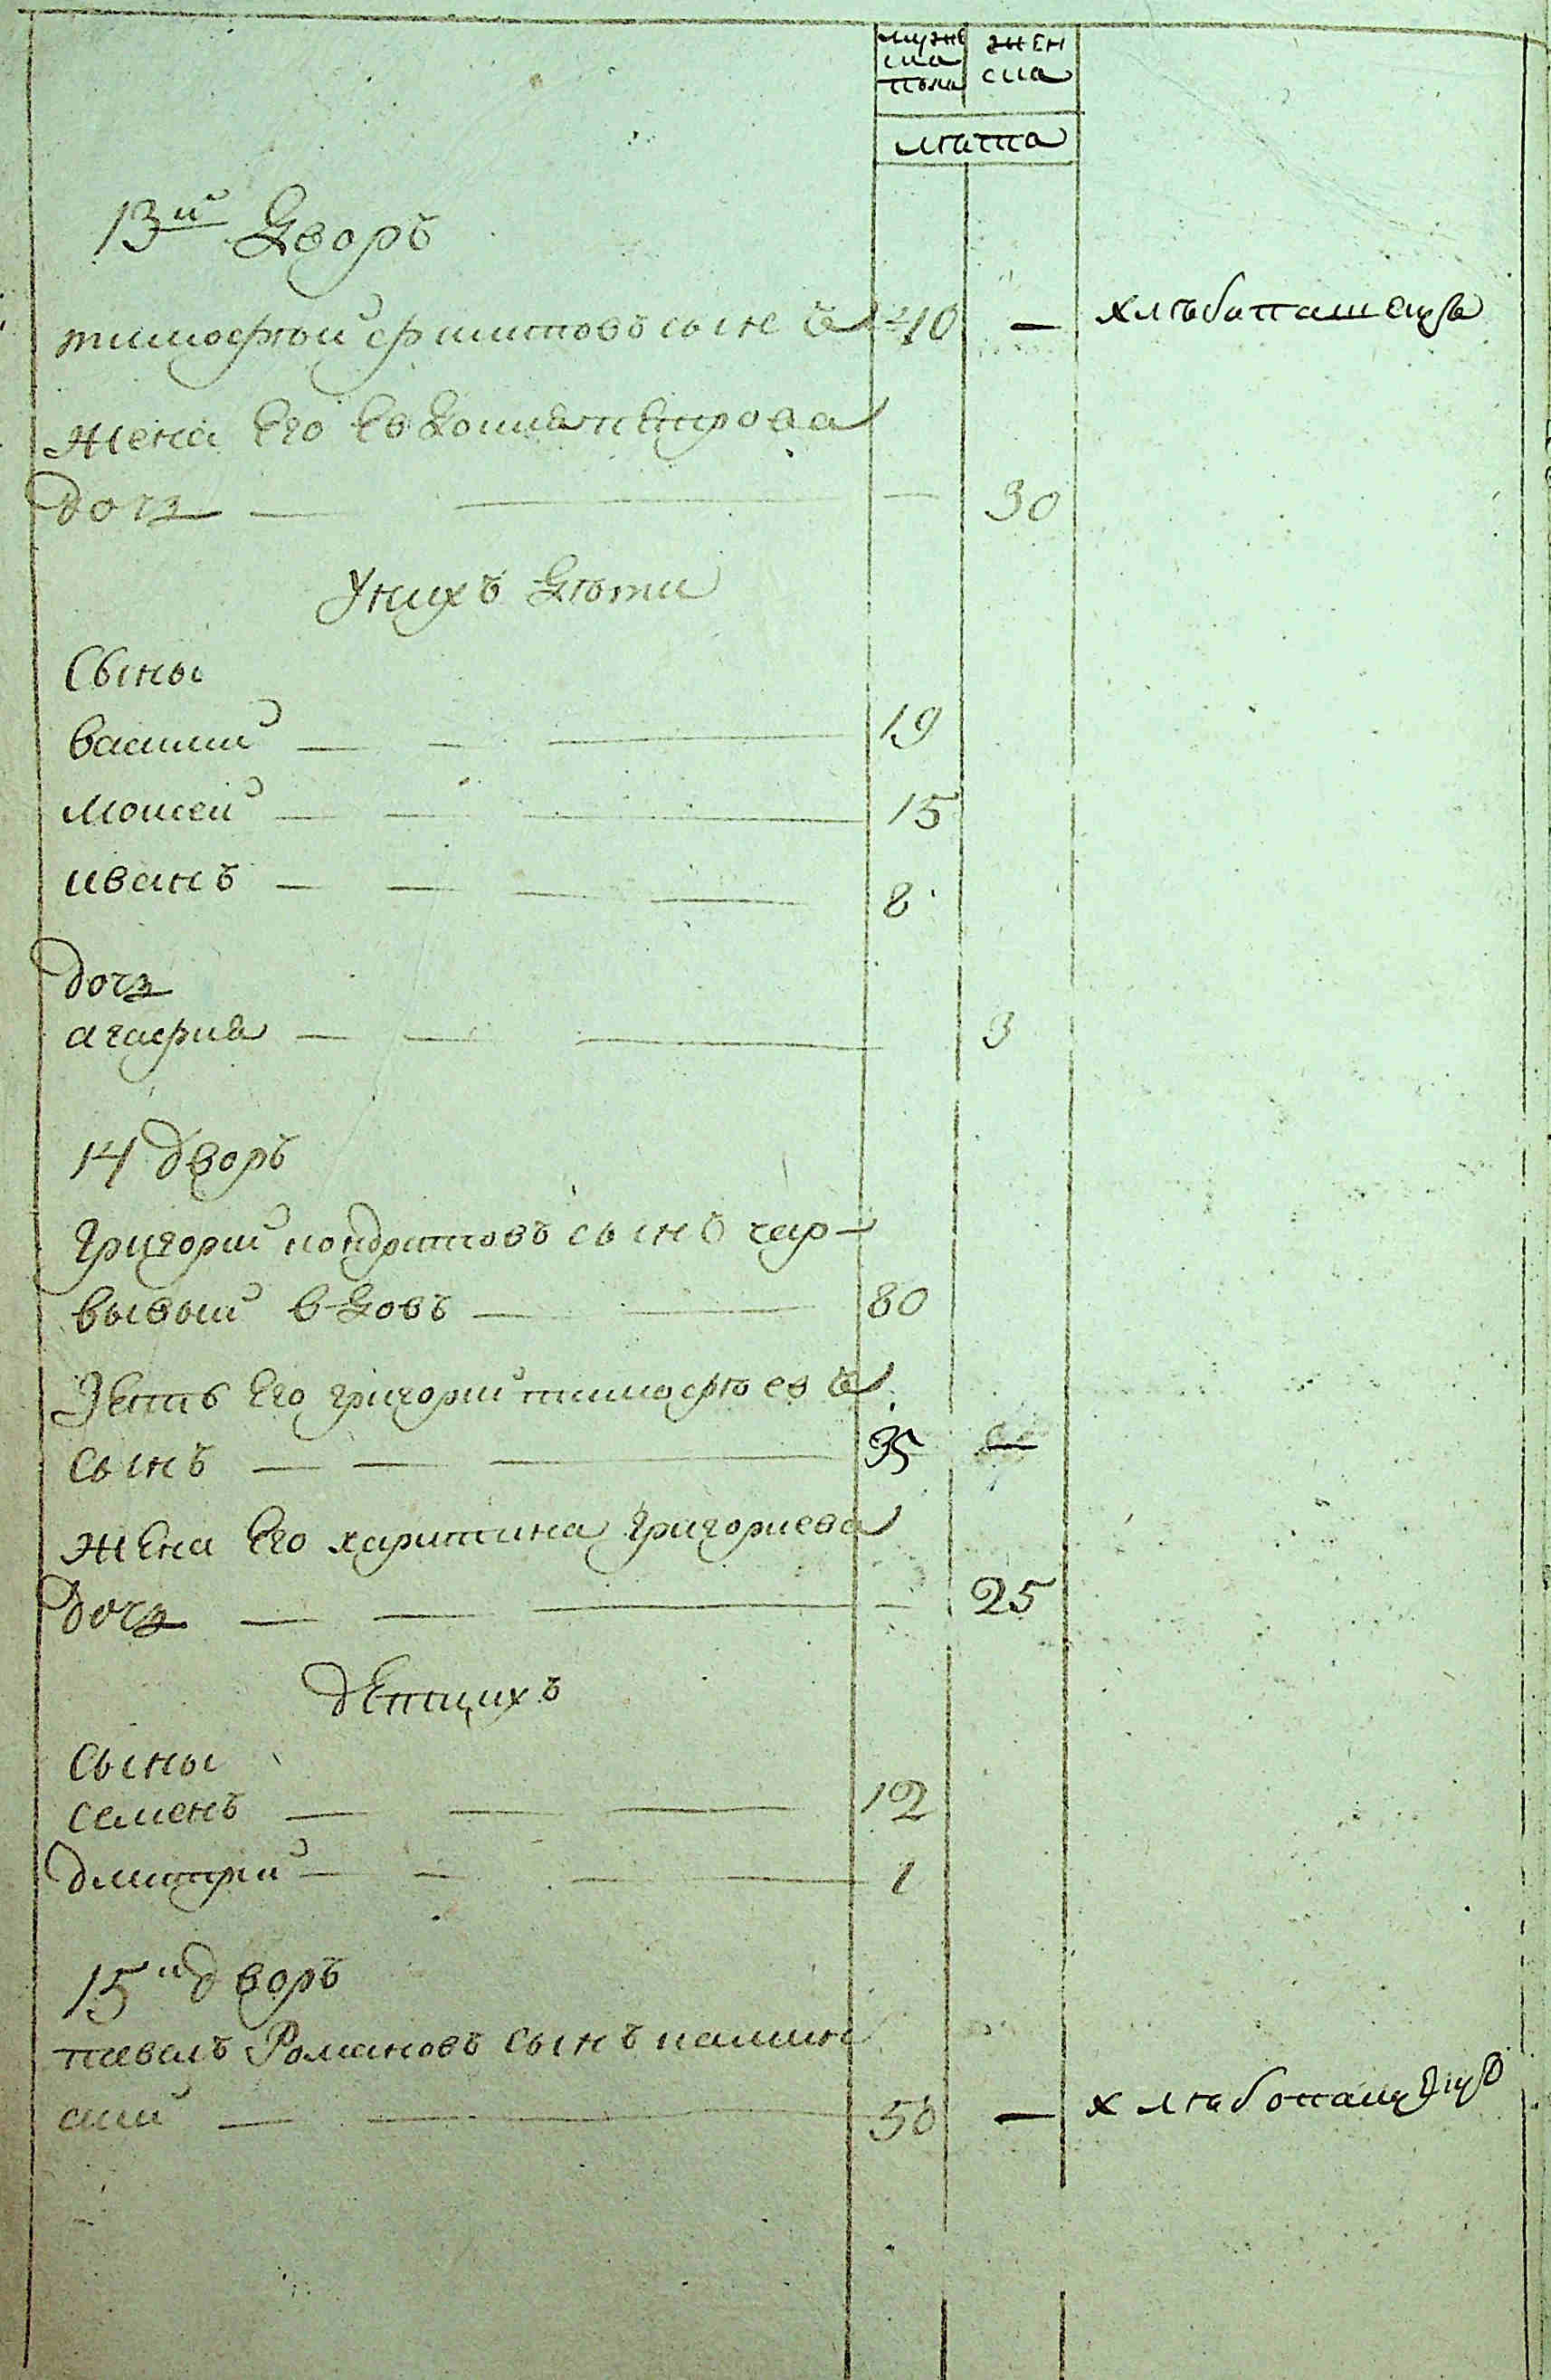 мужс жен
ка ска
пола
лѣта
13й дворъ
тимофѣй филиповъ сынъ 40 — хлѣбапашецъ
жена Его Евдокия петрова
дочь — — — 30
Унихъ дѣти
Сыны
василий — — — 19
Моисей — — — 15
иванъ — — — — 8
дочь
агафия — — — 3
14 дворъ
Григорий кондратовъ сынъ чер-
вывый вдовъ — — 80
Зеть Его григорий тимофѣевъ
сынъ — — — 35 —
жена Его харитина Григориева
дочь — — — — 25
детиихъ
Сыны
семенъ — — — 12
дмитрий — — — — 1
15й дворъ
павелъ Романовъ сынъ калин
ский — — 50 — хлѣбопашецъ